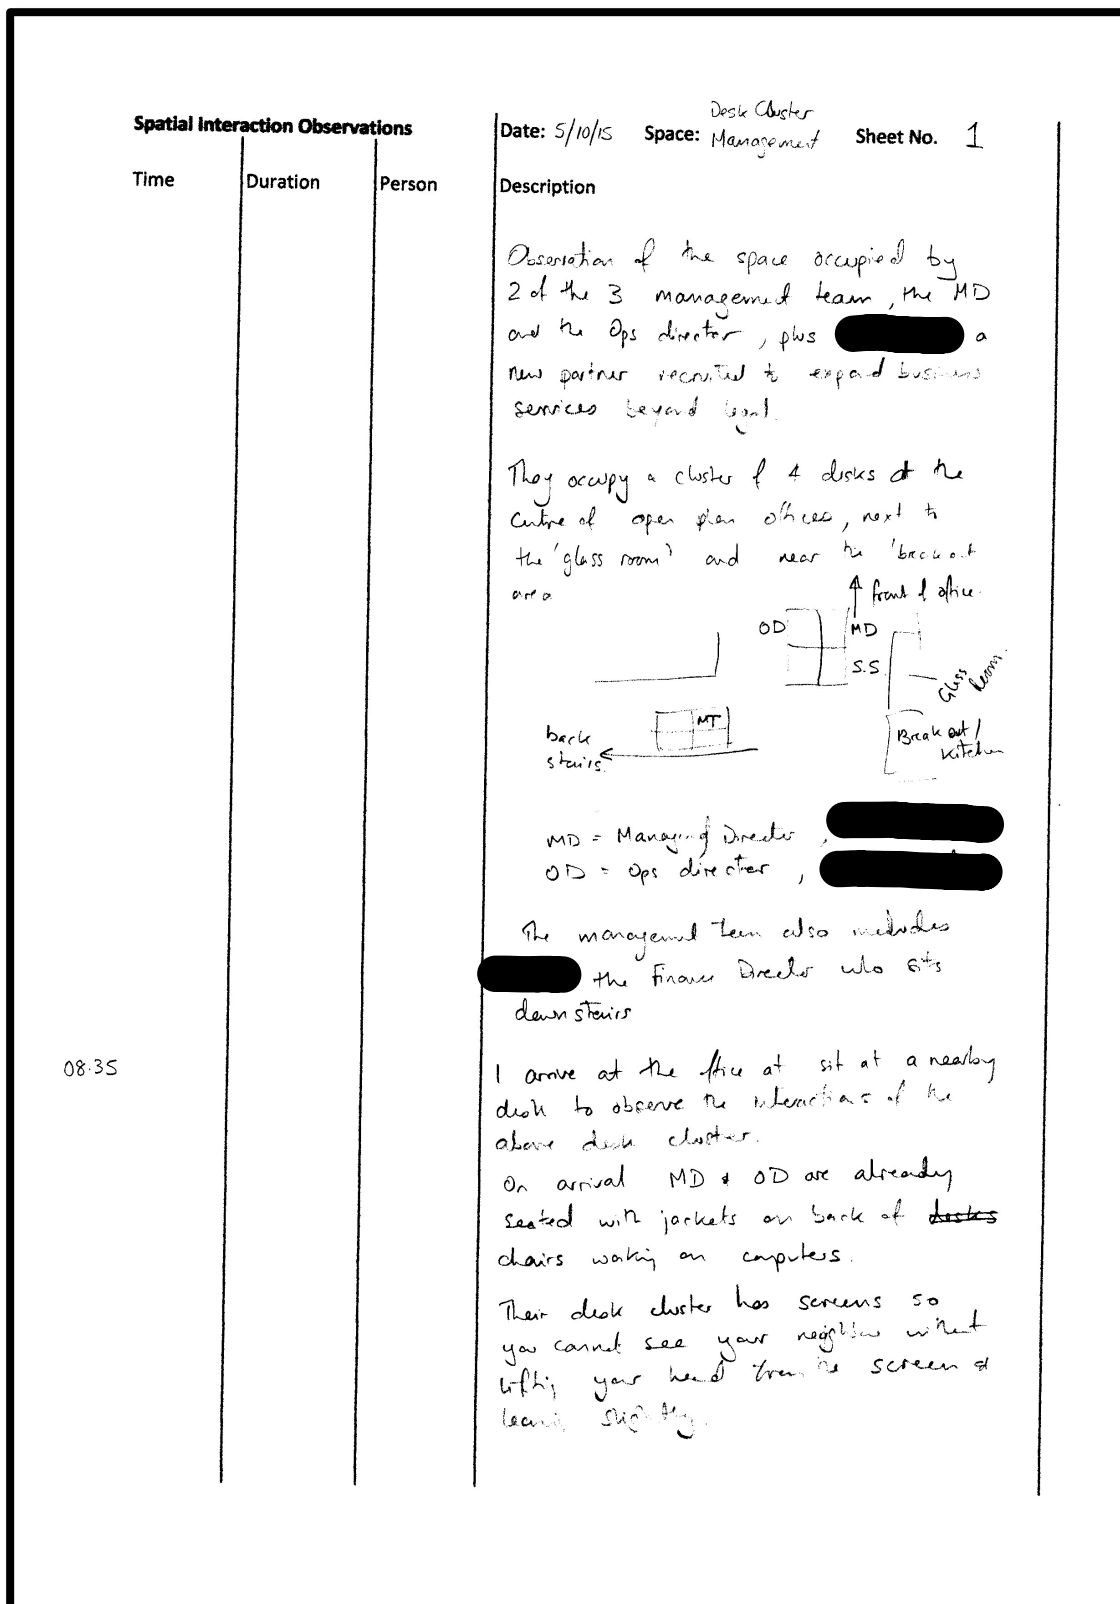 Desk Cluster
Spatial Interaction Observations Date: 5/10/15 Space: Management Sheet No. 1
Time Duration Person Description
Observation of the space occupied by
2 of the 3 management team, the MD
and the Ops director, plus a
new partner recruited to expand business
services beyond legal.
They occupy a cluster of 4 desks at the
centre of open plan offices, next to
the 'glass room' and near the 'break out
area
front of office.
OD MD
S.S.
Glass Room
MT
back
stairs
Break out/
Kitchen
MD = Managing Director,
OD = Ops director,
The management team also includes
the Finance Director who sits
downstairs
08.35 I arrive at the office at sit at a nearby
desk to observe the interactions of the
above desk cluster.
On arrival MD & OD are already
seated with jackets on back of desks
chairs working on computers.
Their desk cluster has screens so
you cannot see your neighbour without
lifting your head from the screen &
leaning slightly.